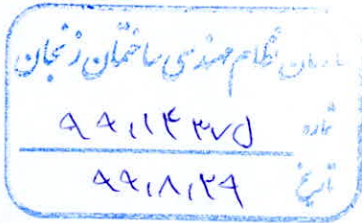 سازمان نظام مهندسی ساختمان زنجان
شماره ۹۹,۱۱۴۳۷ل
تاریخ ۹۹,۸,۲۹